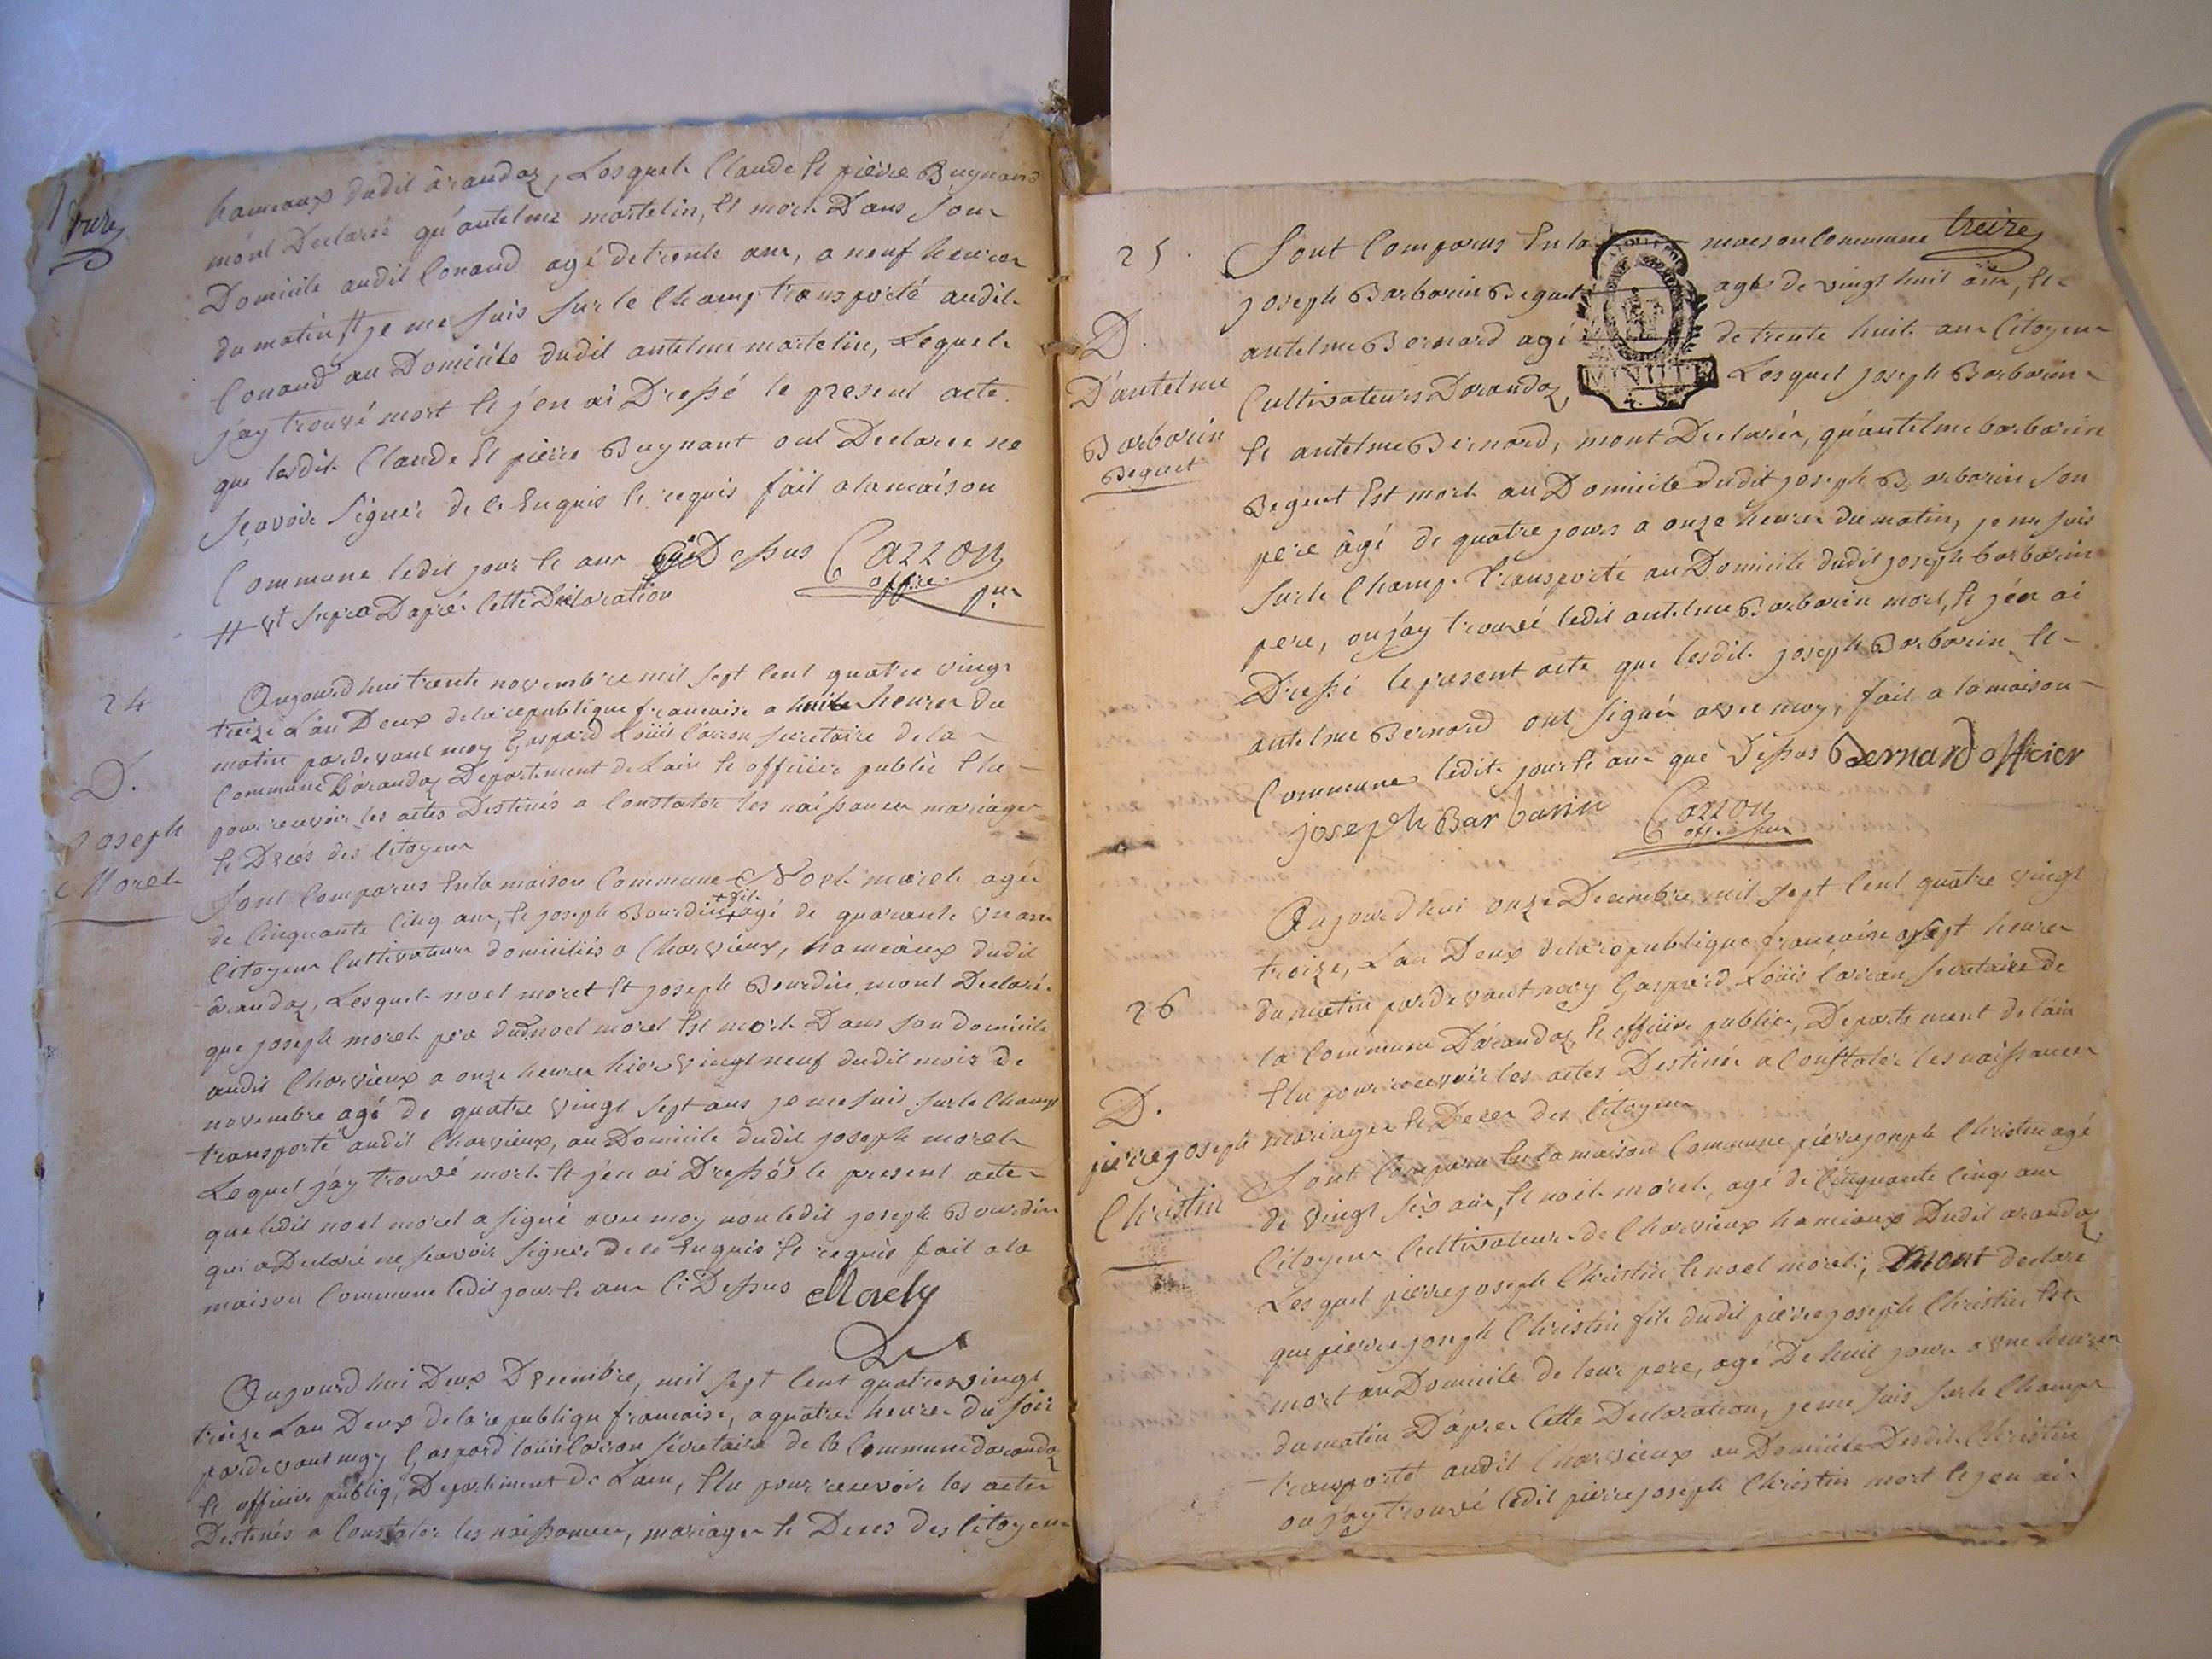 hameaux dudit arandaz, Lesquels Claude Et pierre Buynand
mont Declaré qu'antelme martelin, Et mort Dans Son
Domicile audit Conand agé de trente ans, a neuf heures
du matin # je me suis sur le Champ transporté audit
Conand au Domicile dudit antelme martelin, Lequel
j'ay trouvé mort Et j'en ai Dressé le present acte
que lesdits Claude Et pierre Buynant ont Declarée ne
scavoir Signer de ce Enquis Et requis fait a la maison
Commune ledit jour Et an que Dessus Carron
offier pur
# vt supra Daprés Cette Declaration
24
D.
Joseph
Moret
Aujourd'hui trente novembre mil sept Cent quatre vingt
treize L'an Deux de la republique francaise a huit heures du
matin pardevant moy Gaspard Loüis Carron secretaire de la
Commune D'arandaz Departement de Lain Et officier public Elu
pour recevoir les actes Destinés a Constater les naissances mariages
Et Décés des Citoyens
Sont Comparus En la maison Commune Noel moret agé
de Cinquante Cinq ans, Et joseph Bourdin agé de quarante un ans
Citoyens Cultivateurs domiciliés a Charvieux, hameaux dudit
arandaz, Lesquels noel moret Et joseph Bourdin mont Declaré
que joseph moret pere dud. noel moret Est mort Dans son domicile
audit Charvieux a onze heures hier vingt neuf dudit mois de
novembre agé de quatre vingt sept ans je me suis sur le Champ
transporté audit Charvieux, au Domicile dudit joseph moret
Lequel j'ay trouvé mort Et j'en ai Dressés le present acte
que ledit noel moret a signé avec moy non ledit joseph Bourdin
qui a Declaré ne scavoir signer de ce Enquis Et requis fait a la
maison Commune ledit jour Et an Ci Dessus
Aujourd'hui Deux Décembre, mil sept Cent quatre vingt
treize L'an Deux de la republique francaise, a quatre heures du soir
pardevant moy Gaspard loüis Carron sécretaire de la Commune darandaz
Et officier publiq, Departement de Lain, Elu pour recevoir les actes
Destinés a Constater les naissances, mariages Et Deces des Citoyens
treize
25.
D.
D'antelme
Barbarin
Beguet
Sont Comparus En la maison Commune
joseph Barbarin Beguet agé de vingt huit ans, Et
antelme Bernard agé de trente huit ans Citoyens
Cultivateurs Darandaz, Lesquel joseph Barbarin
Et antelme Bernard, mont Declarés, qu'antelme barbarin
Beguet Est mort au Domicile dudit joseph Barbarin son
pere âgé de quatre jours a onze heures du matin, je me suis
sur le Champ transporté au Domicile dudit joseph barbarin
pere, ou j'ay trouvé ledit antelme Barbarin mort, Et j'en ai
Dressé le present acte que lesdits joseph Barbarin Et
antelme Bernard ont signés avec moy, fait a la maison
Commune, ledit jour Et an que Dessus Bernard officier
joseph Barbarin Carron
off. pur
26
D.
pierre joseph
Christin
Aujourd'hui onze Decembre mil sept Cent quatre vingt
treize, L'an Deux de la republique francaise a sept heures
du matin pardevant moy Gaspard Loüis Carron secretaire de
la Commune D'arandaz, Et officier public, Departement de lain
Elu pour recevoir les actes Destinés a Constater les naissances
mariages Et Deces des Citoyens
Sont Comparu En la maison Commune pierre joseph Christin agé
de vingt six ans, Et noel moret, agé de Cinquante Cinq ans
Citoyens Cultivateurs de Charvieux hameaux Dudit arandaz
Lesquel pierre joseph Christin Et noel moret, mont declaré
que pierre joseph Christin fils dudit pierre joseph Christin Est
mort au Domicile de leur pere, agé De huit jours a une heures
du matin D'apres Cette Declaration, je me suis sur le Champ
transporté audit Charvieux au Domicile Desdits Christin
ou j'ay trouvé ledit pierre joseph Christin mort Et j'en ai